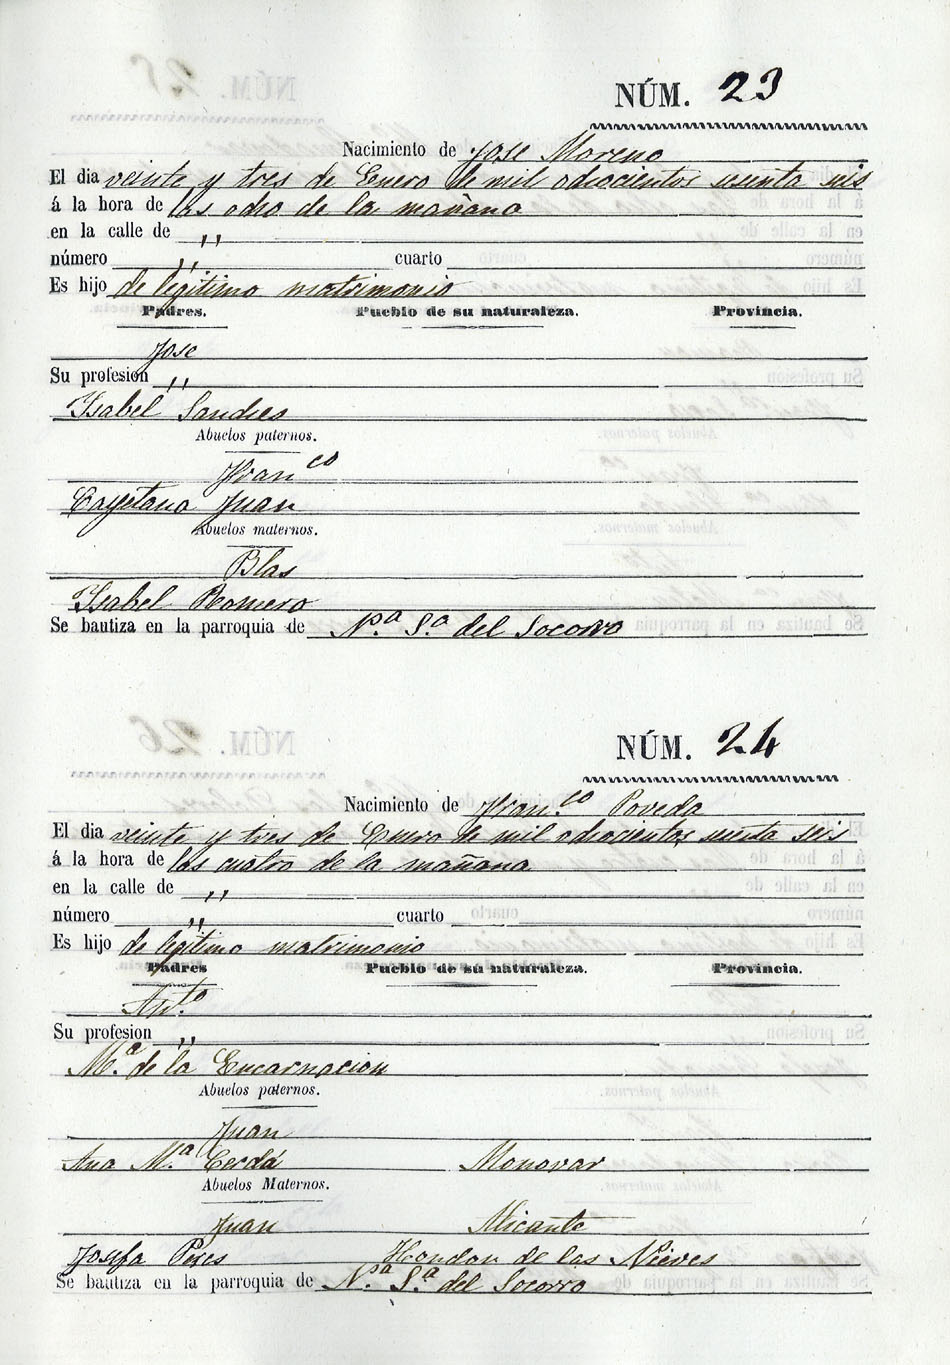 NÚM. 23
Nacimiento de Jose Moreno
El dia veinte y tres de Enero de mil odrocientos sesenta seis
á la hora de las odro de la mañana
en la calle de ,,
número ,, cuarto
Es hijo de legitimo matrimonio
Padres. Pueblo de su naturaleza. Provincia.
Jose
Su profesion ,,
Isabel
Abuelos paternos.
Fran.co
Cayetana Juan
Abuelos maternos.
Blas
Isabel Romero
Se bautiza en la parroquia de N.ª S.ª del Socorro
NÚM. 24
Nacimiento de Fran.co Poveda
El dia veinte y tres de Enero de mil odrocientos sesenta seis
á la hora de las cuatro de la mañana
en la calle de ,,
número ,, cuarto
Es hijo de legitimo matrimonio
Padres Pueblo de su naturaleza. Provincia.
Ant.o
Su profesion ,,
M.ª de la Encarnacion
Abuelos paternos.
Juan
Ana M.ª Cerdá Monovar
Abuelos Maternos.
Juan Alicante
Josefa Peres Hondon de las Nieves
Se bautiza en la parroquia de N.ª S.ª del Socorro